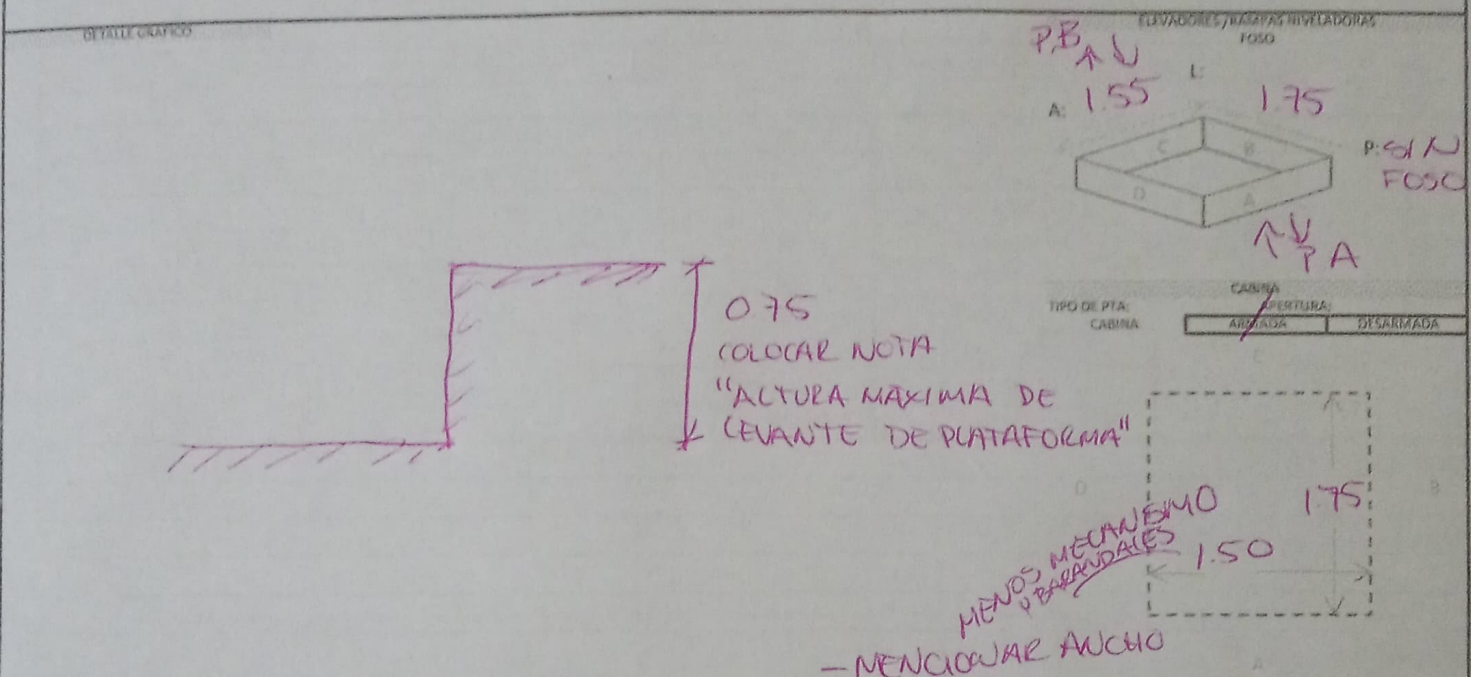 DETALLE GRAFICO
ELEVADORES/RAMPAS NIVELADORAS
FOSO
P.B
L:
A: 1.55
1.75
C
B
P: SIN
FOSO
D
A
P A
CABINA
TIPO DE PTA:
APERTURA:
CABINA
ARMADA
DESARMADA
0.75
COLOCAR NOTA
"ALTURA MAXIMA DE
LEVANTE DE PLATAFORMA"
C
D
B
1.75
1.50
MENOS MECANISMO
Y BARANDALES
- MENCIONAR ANCHO
A